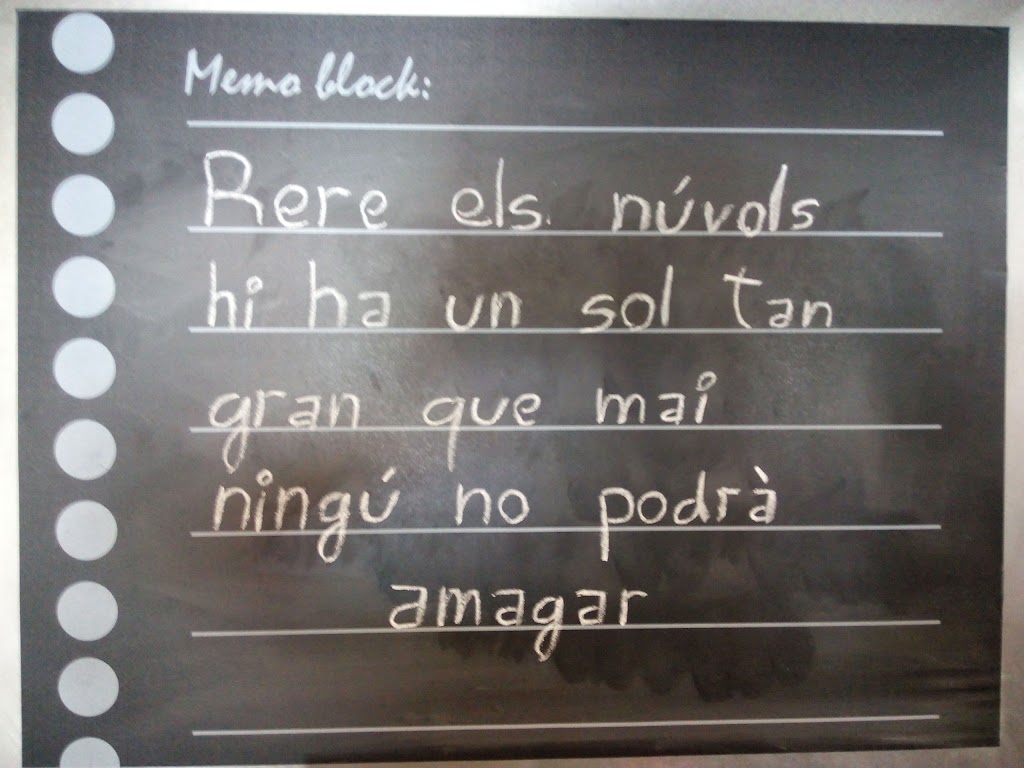 Memo block:
Rere els núvols
hi ha un sol tan
gran que mai
ningú no podrà
amagar